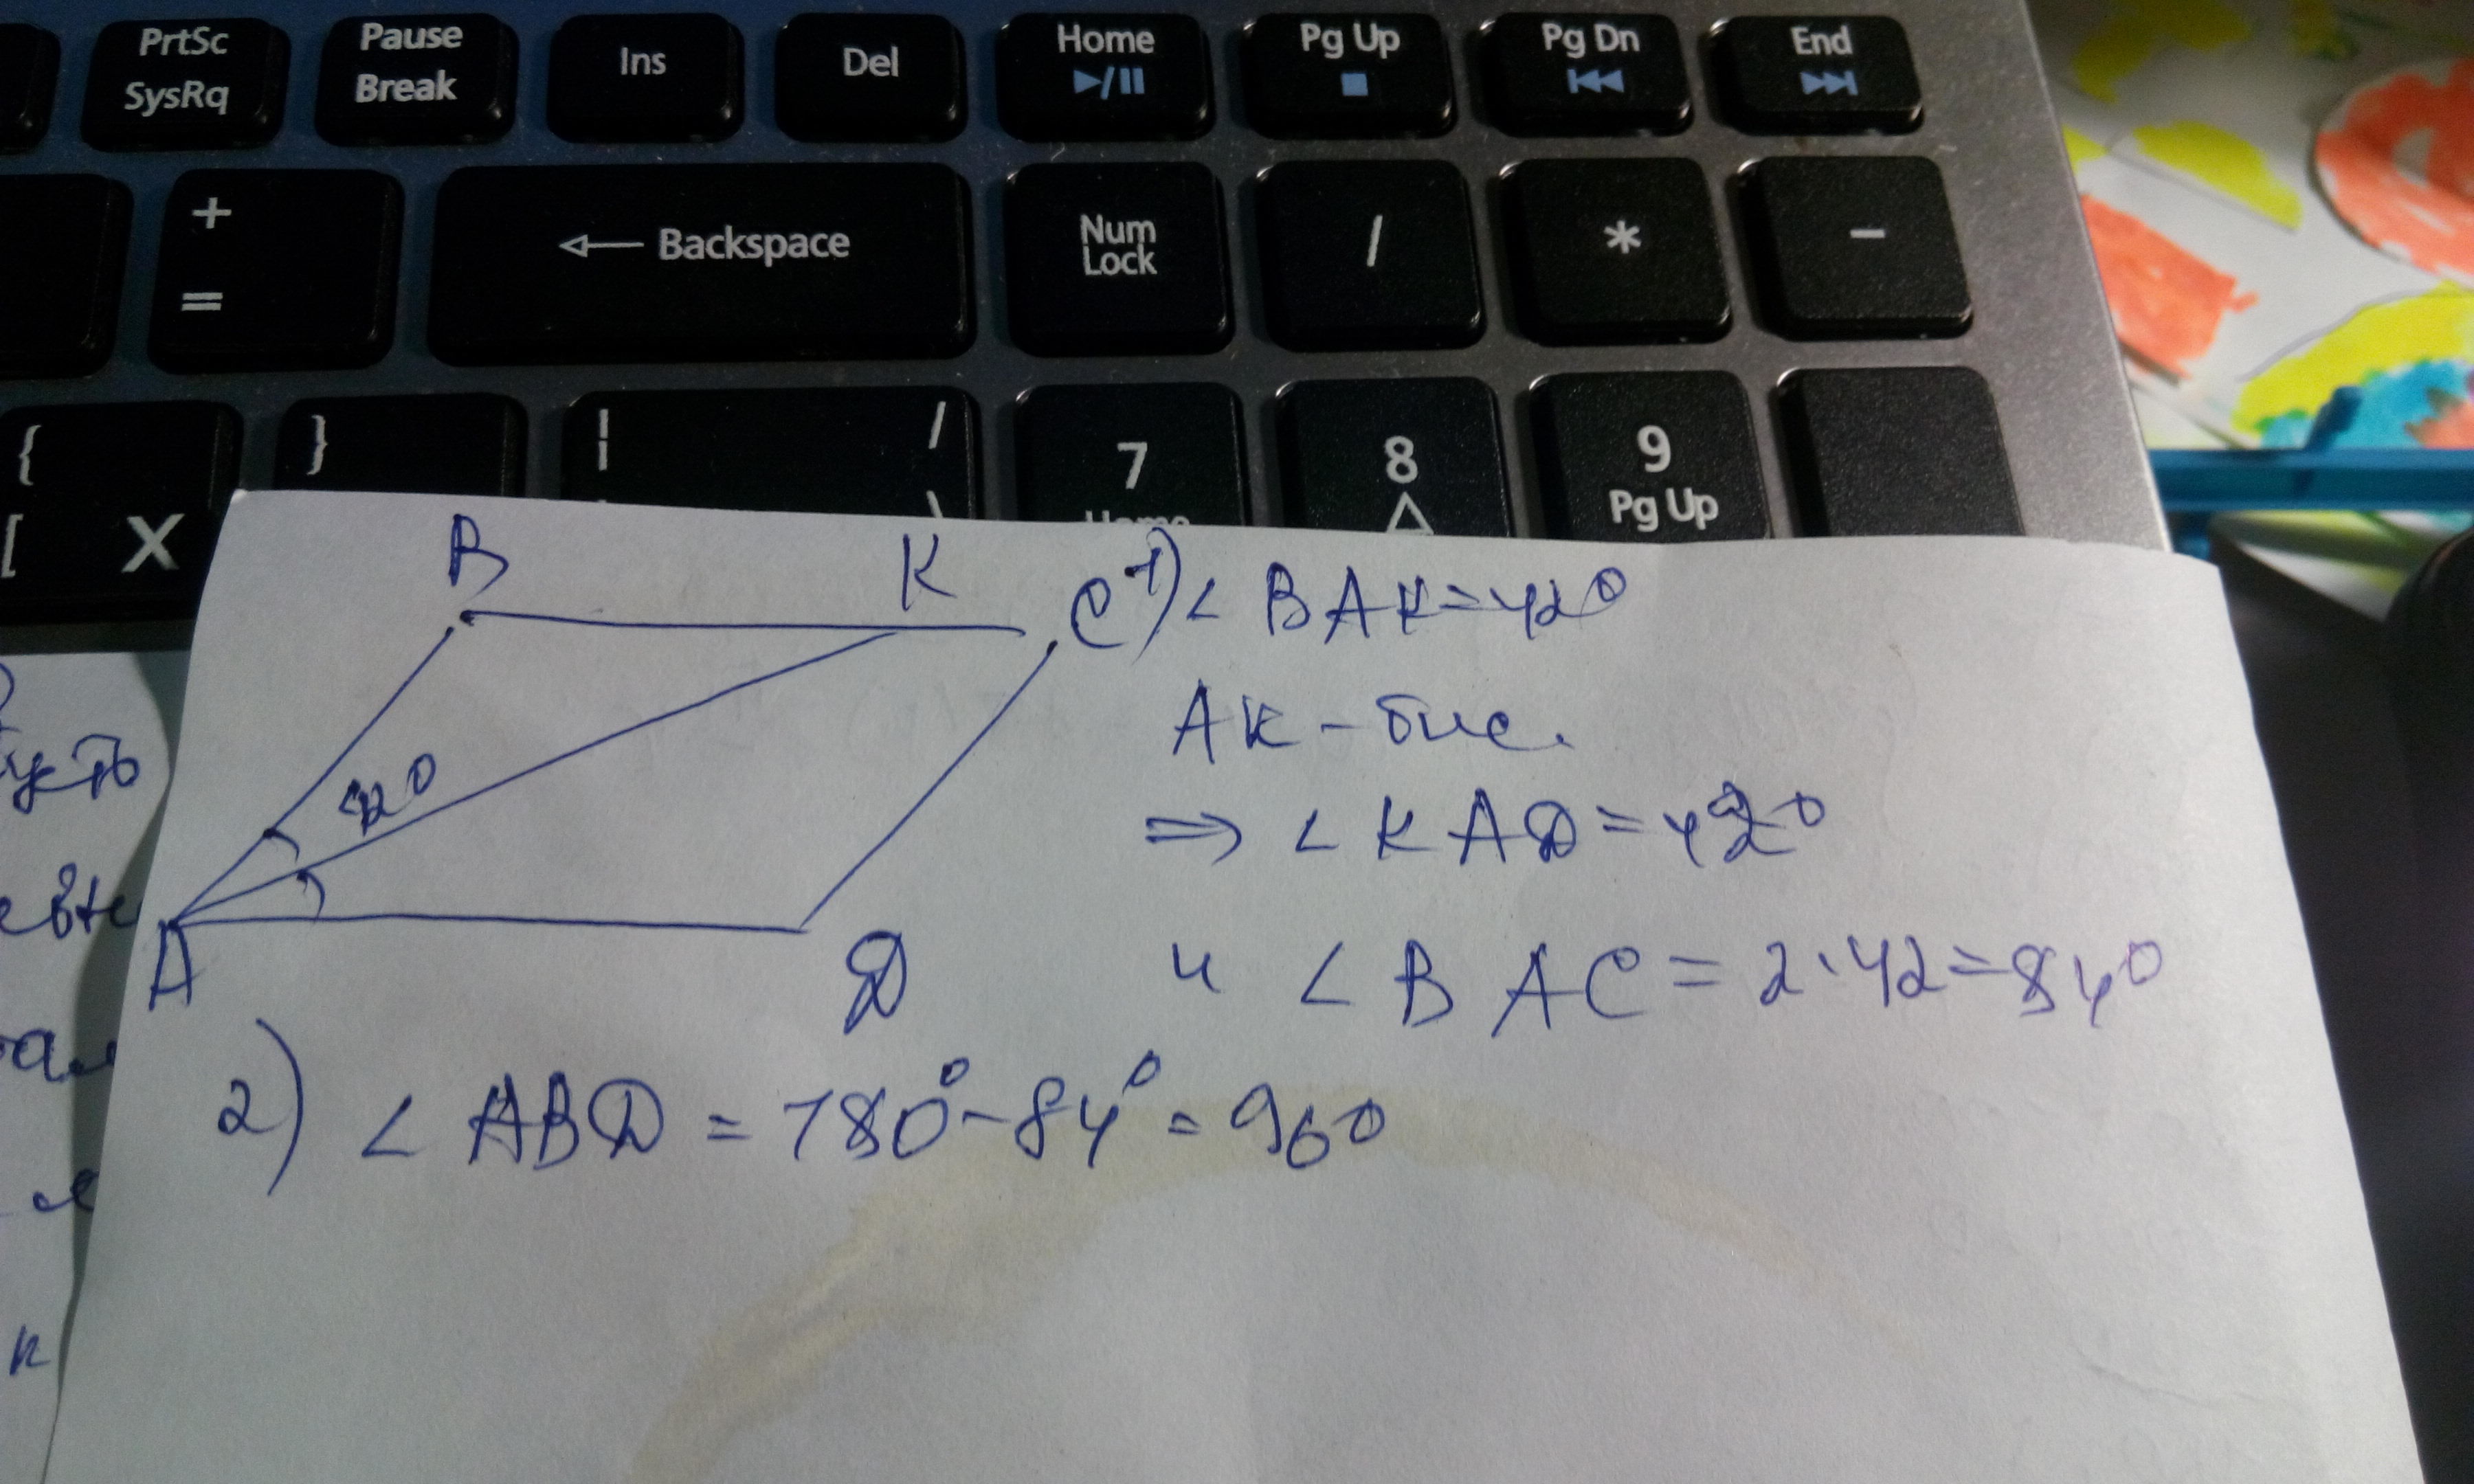 PrtSc
SysRq
Pause
Break
Ins
Del
Home
Pg Up
Pg Dn
End
+
=
← Backspace
Num
Lock
/
*
-
{
[ Х
}
|
/
\
7
8
9
Pg Up
B K C
42°
A D
1) ∠ BAK=42°
AK - бис.
⇒ ∠ KAD=42°
и ∠ BAC = 2·42=84°
2) ∠ ABD = 180°-84° = 96°
усть
к